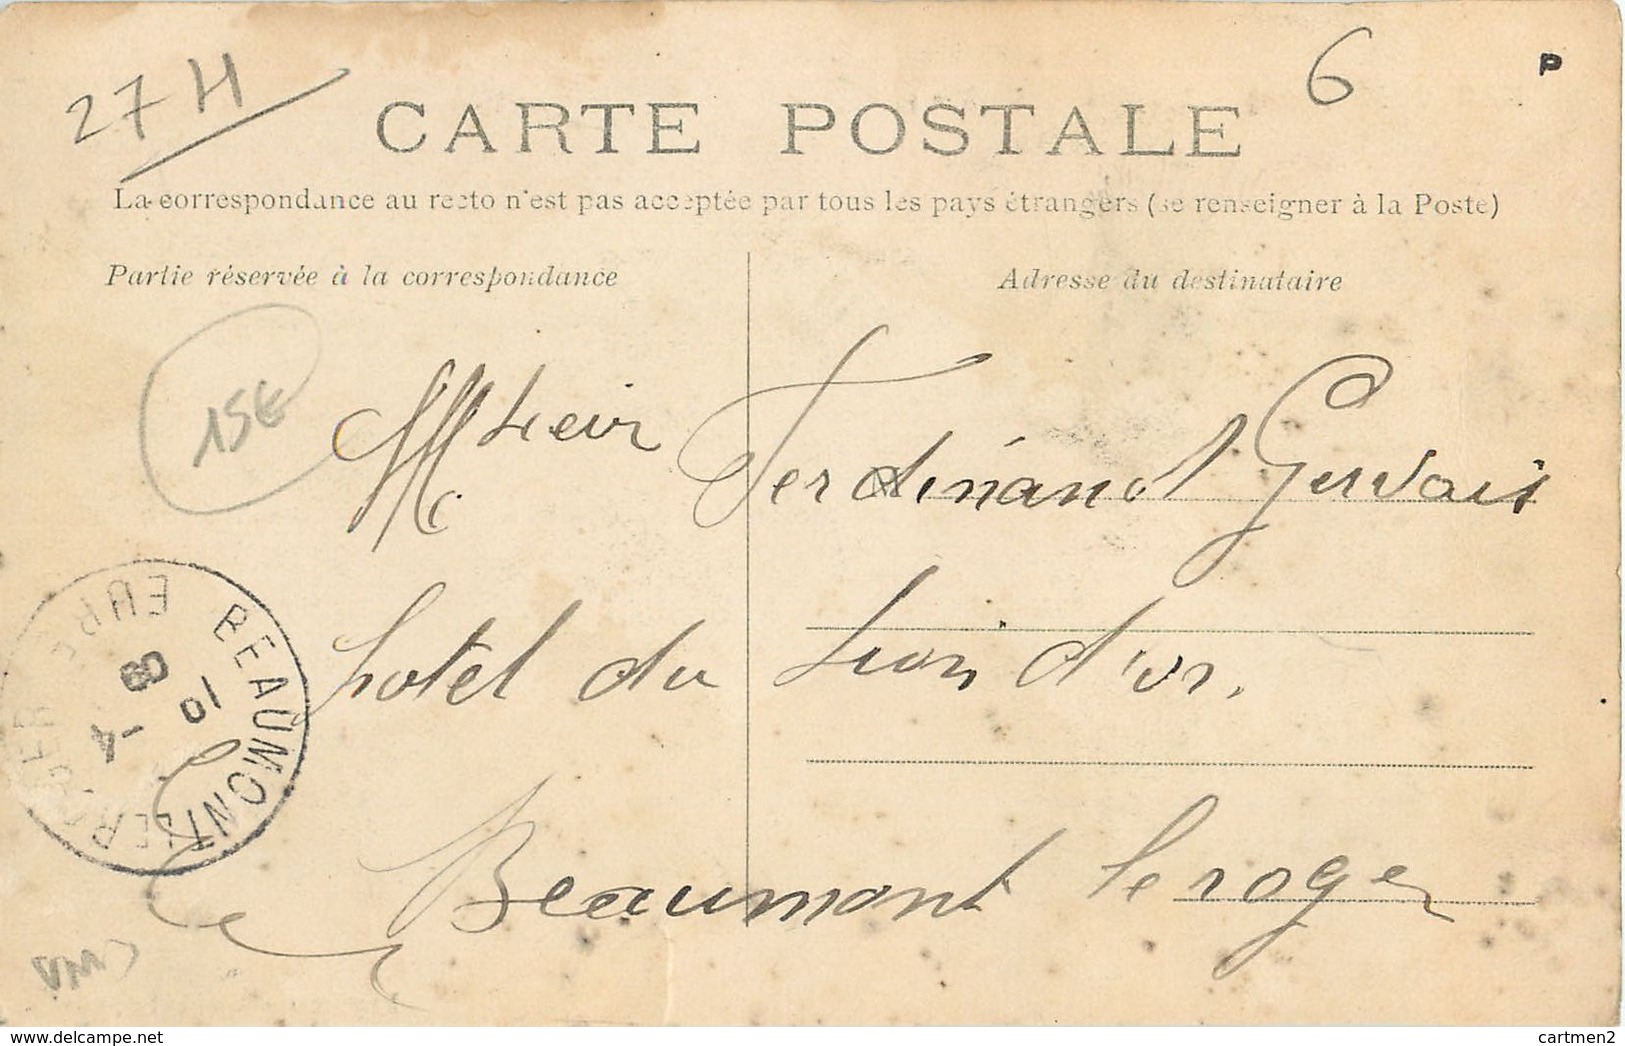 27 H
6
P
CARTE POSTALE
La correspondance au recto n'est pas acceptée par tous les pays étrangers (se renseigner à la Poste)
Partie réservée à la correspondance
Adresse du destinataire
15€
Ferdinand Gervais
hotel du Lion d'or.
Beaumont le roger
BEAUMONT LE ROGER EURE
10 -4 09
VM
cartmen2